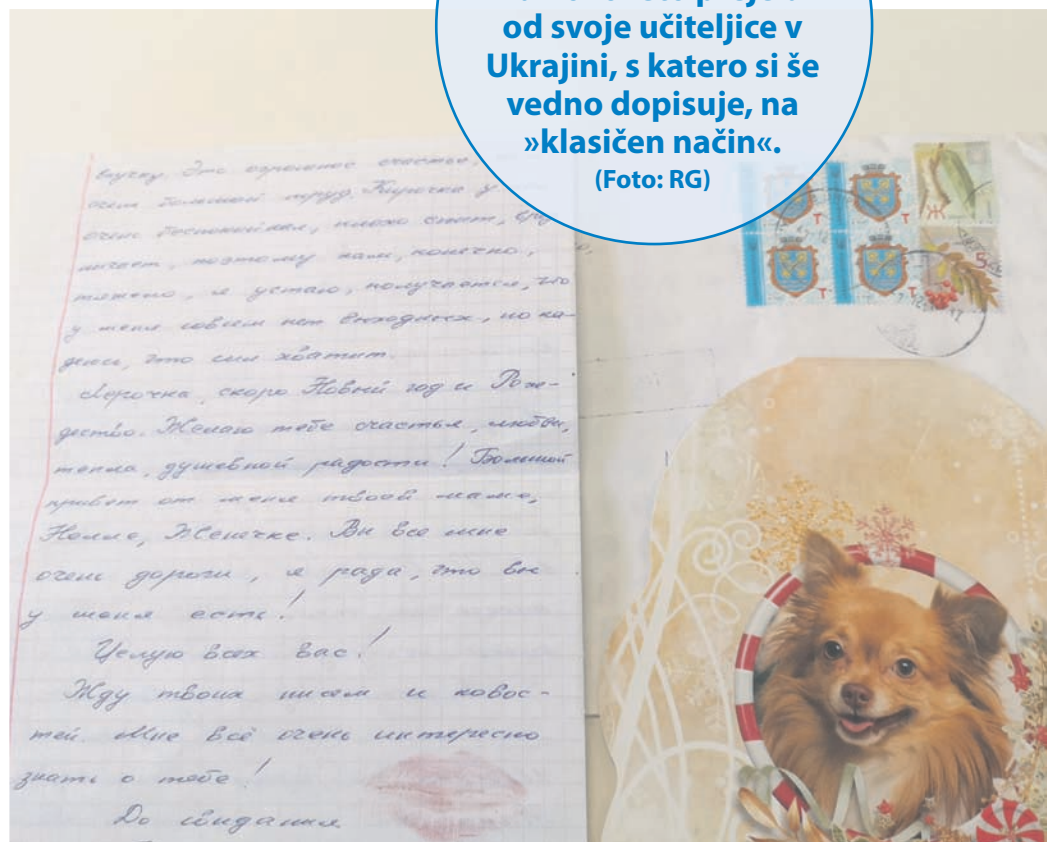 od svoje učiteljice v
Ukrajini, s katero si še
vedno dopisuje, na
»klasičen način«.
(Foto: RG)
внучку. Это огромное счастье,
очень большой труд. Кирочка у
очень беспокойная, плохо спит,
ничает, поэтому нам, конечно,
тяжело, я устаю, получается, что
у меня совсем нет выходных, но на-
деюсь, что сил хватит.
Лерочка, скоро Новый год и Рож-
дество. Желаю тебе счастья, любви,
тепла, душевной радости! Большой
привет от меня твоей маме,
Нелле, Женечке. Вы все мне
очень дороги, я рада, что вы
у меня есть!
Целую всех вас!
Жду твоих писем и новос-
тей. Мне всё очень интересно
знать о тебе!
До свидания
T T Ж
T T 5